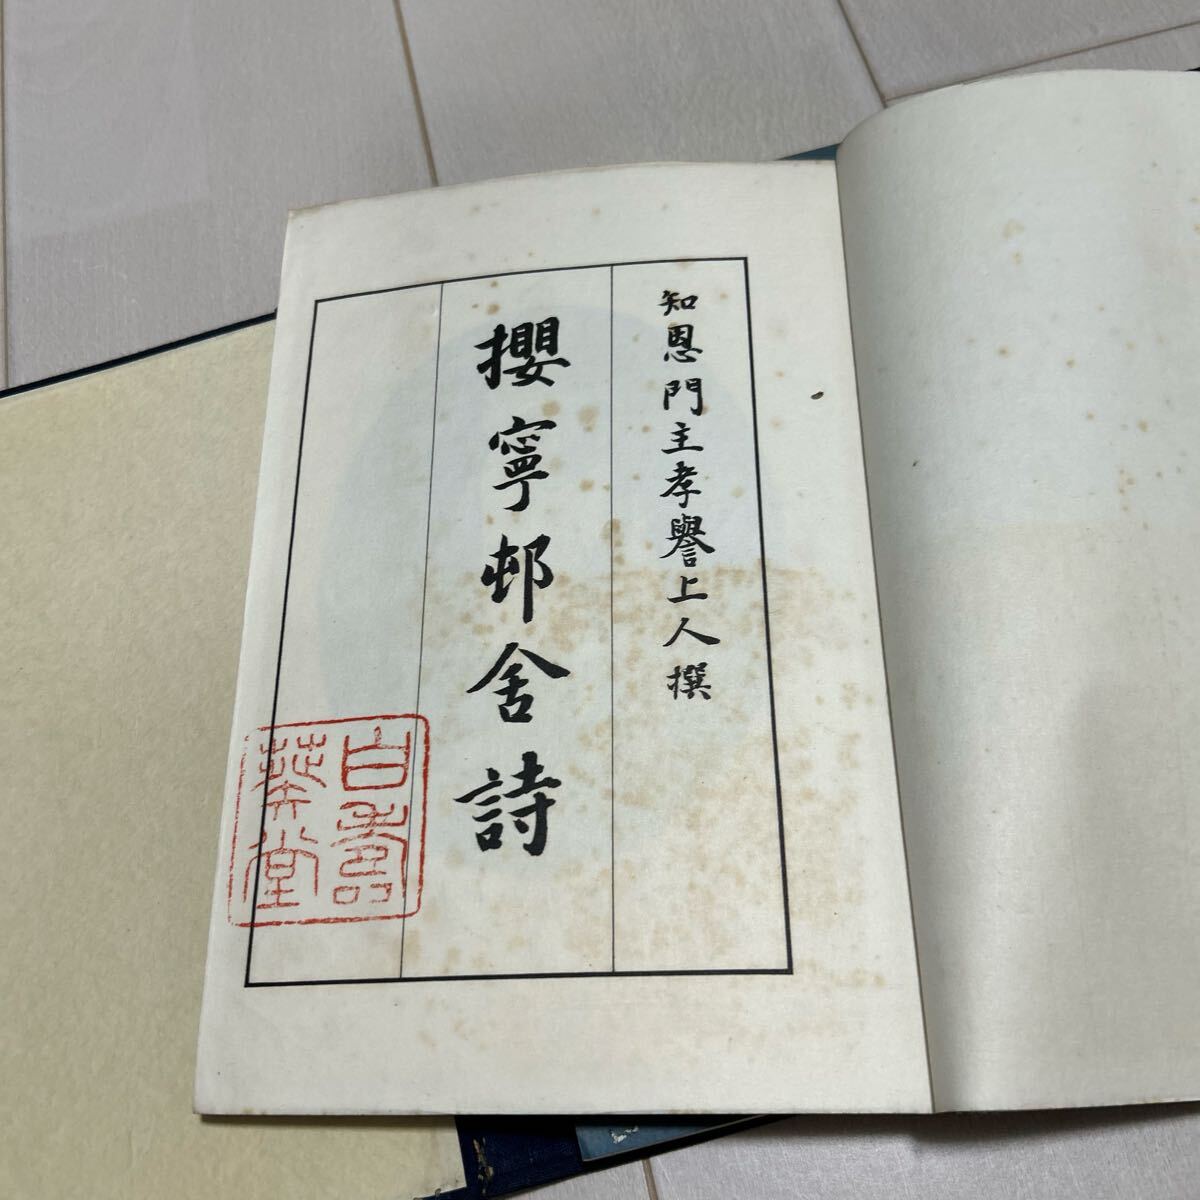 知恩門主孝譽上人撰
攖寧邨舍詩
白壽
華堂